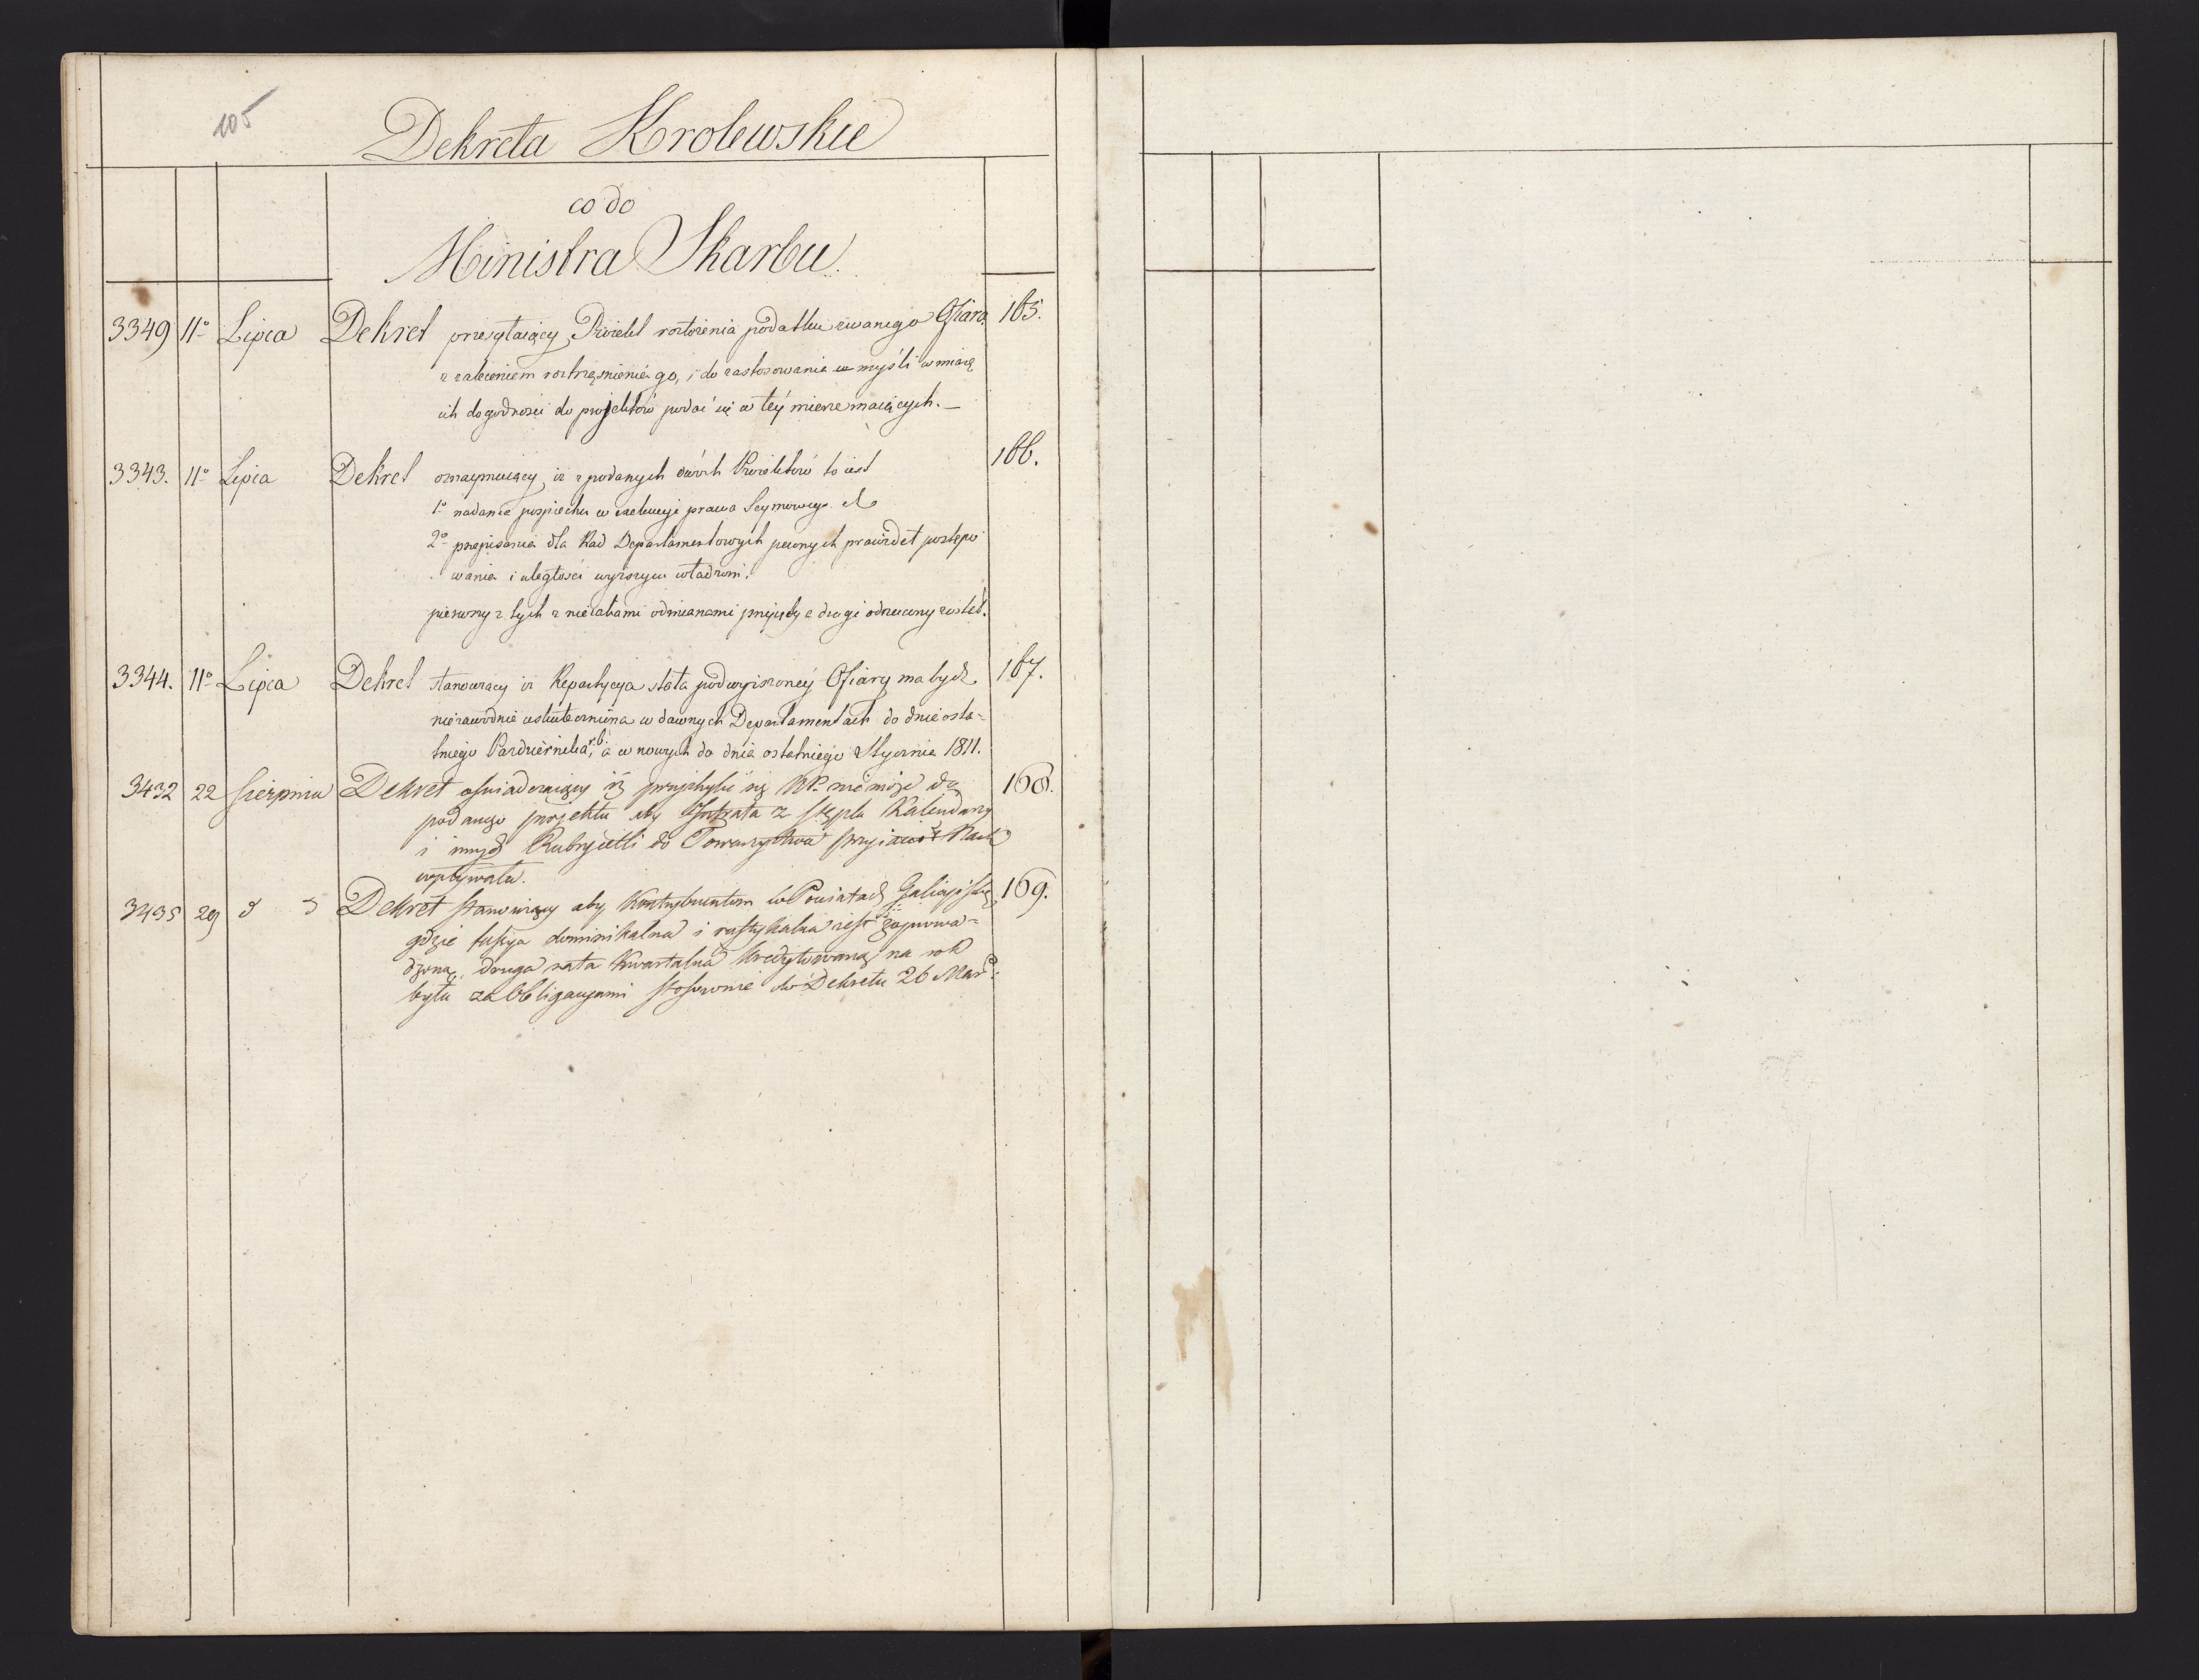 105
Dekreta Krolewskie
co do
Ministra Skarbu.
3349 11º Lipca Dekret przesyłaiący Proiekt rozłożenia podatku zwanego Ofiarą 165.
z zaleceniem roztrząśnienia go, i do zastosowania myśli w miarę
ich dogodności do projektów podać się w téy mierze maiących. —
3343. 11º Lipca Dekret oznaymuiący, iż z podanych dwóch Proiektów to iest 166.
1º nadania pospiechu w exekucyi prawa Seymowego
2º przepisania dla Rad Departamentowych pewnych prawideł postępo
wania i uległości wyższym władzom,
pierwszy z tych z nieiakami odmianami przyięty a drugi odrzucony został.
3344. 11º Lipca Dekret stanowiący iż Repartycya stała podwyższonéy Ofiary ma bydź 167.
niezawodnie uskuteczniona w dawnych Departamentach do dnia osta=
tniego Pazdziernika r. b. a w nowych do dnia ostatniego Stycznia 1811.
3432 22 Sierpnia Dekret oświadczaiący iż przychylić się NP. nie może do 168.
podanego projektu aby Intrata z stępla Kalendarzy
i innych Rubryczelli do Towarzystwa Przyiaciół Nauk
wpływała.
3435 29 d d Dekret stanowiący aby Kontrybuentom w Powiatach Galicyiskich 169.
gdzie fassya dominikalna i rustykalna iest zaprowa=
dzoną, druga rata Kwartalna kredytowaną na rok
była za Obligacyami stosownie do Dekretu 26 Marca